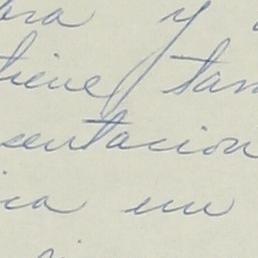 ara y
tiene tam
sentacion
ica en